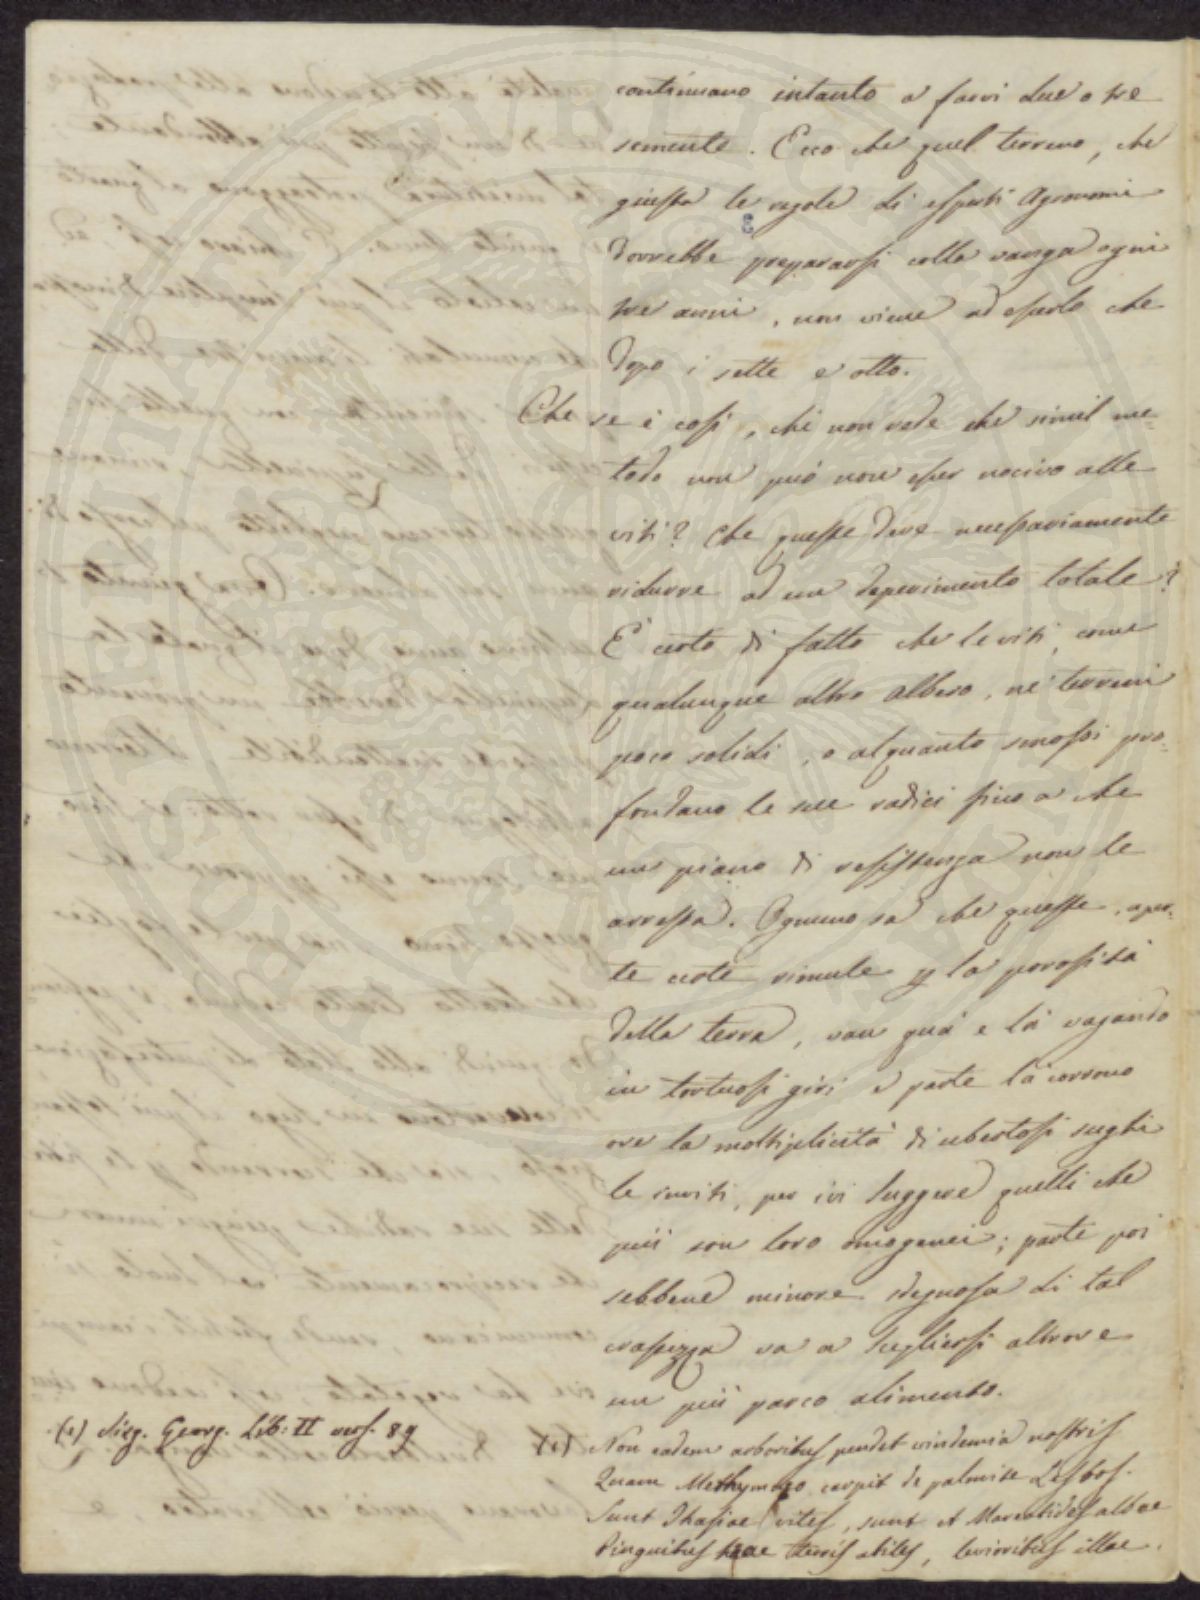 continuano intanto a farvi due o tre
semente. Ecco che quel terreno, che
giusta le regole di esperti Agronomi
dovrebbe prepararsi colla vanga ogni
tre anni, non viene ad esserlo che
dopo i sette e otto.
Che se è così, chi non vede che simil me-
todo non può non esser nocivo alle
viti? Che queste deve necessariamente
ridurre ad un deperimento totale?
E' certo di fatto che le viti, come
qualunque altro albero, ne' terreni
poco solidi, o alquanto smossi pro-
fondano le sue radici fino a che
un piano di resistenza non le
arresta. Ognuno sa che queste, aper-
te certe rimule p la porosità
della terra, van quà e là vagando
in tortuosi giri e parte là corrono
ove la moltiplicità di ubertosi sughi
le inviti, per ivi suggere quelli che
più son loro omogenei; parte poi
sebbene minore sdegnosa di tal
va a scegliersi altrove
un più parco alimento.
(1) Virg. Georg. Lib: II vers. 89
(1) Non eadem arboribus pendet vindemia nostris
Quam Methymneo carpit de palmite Lesbos.
Sunt Thasiae vites, sunt et Mareotides albae
Pinguibus hae terris abiles, levioribus illae.